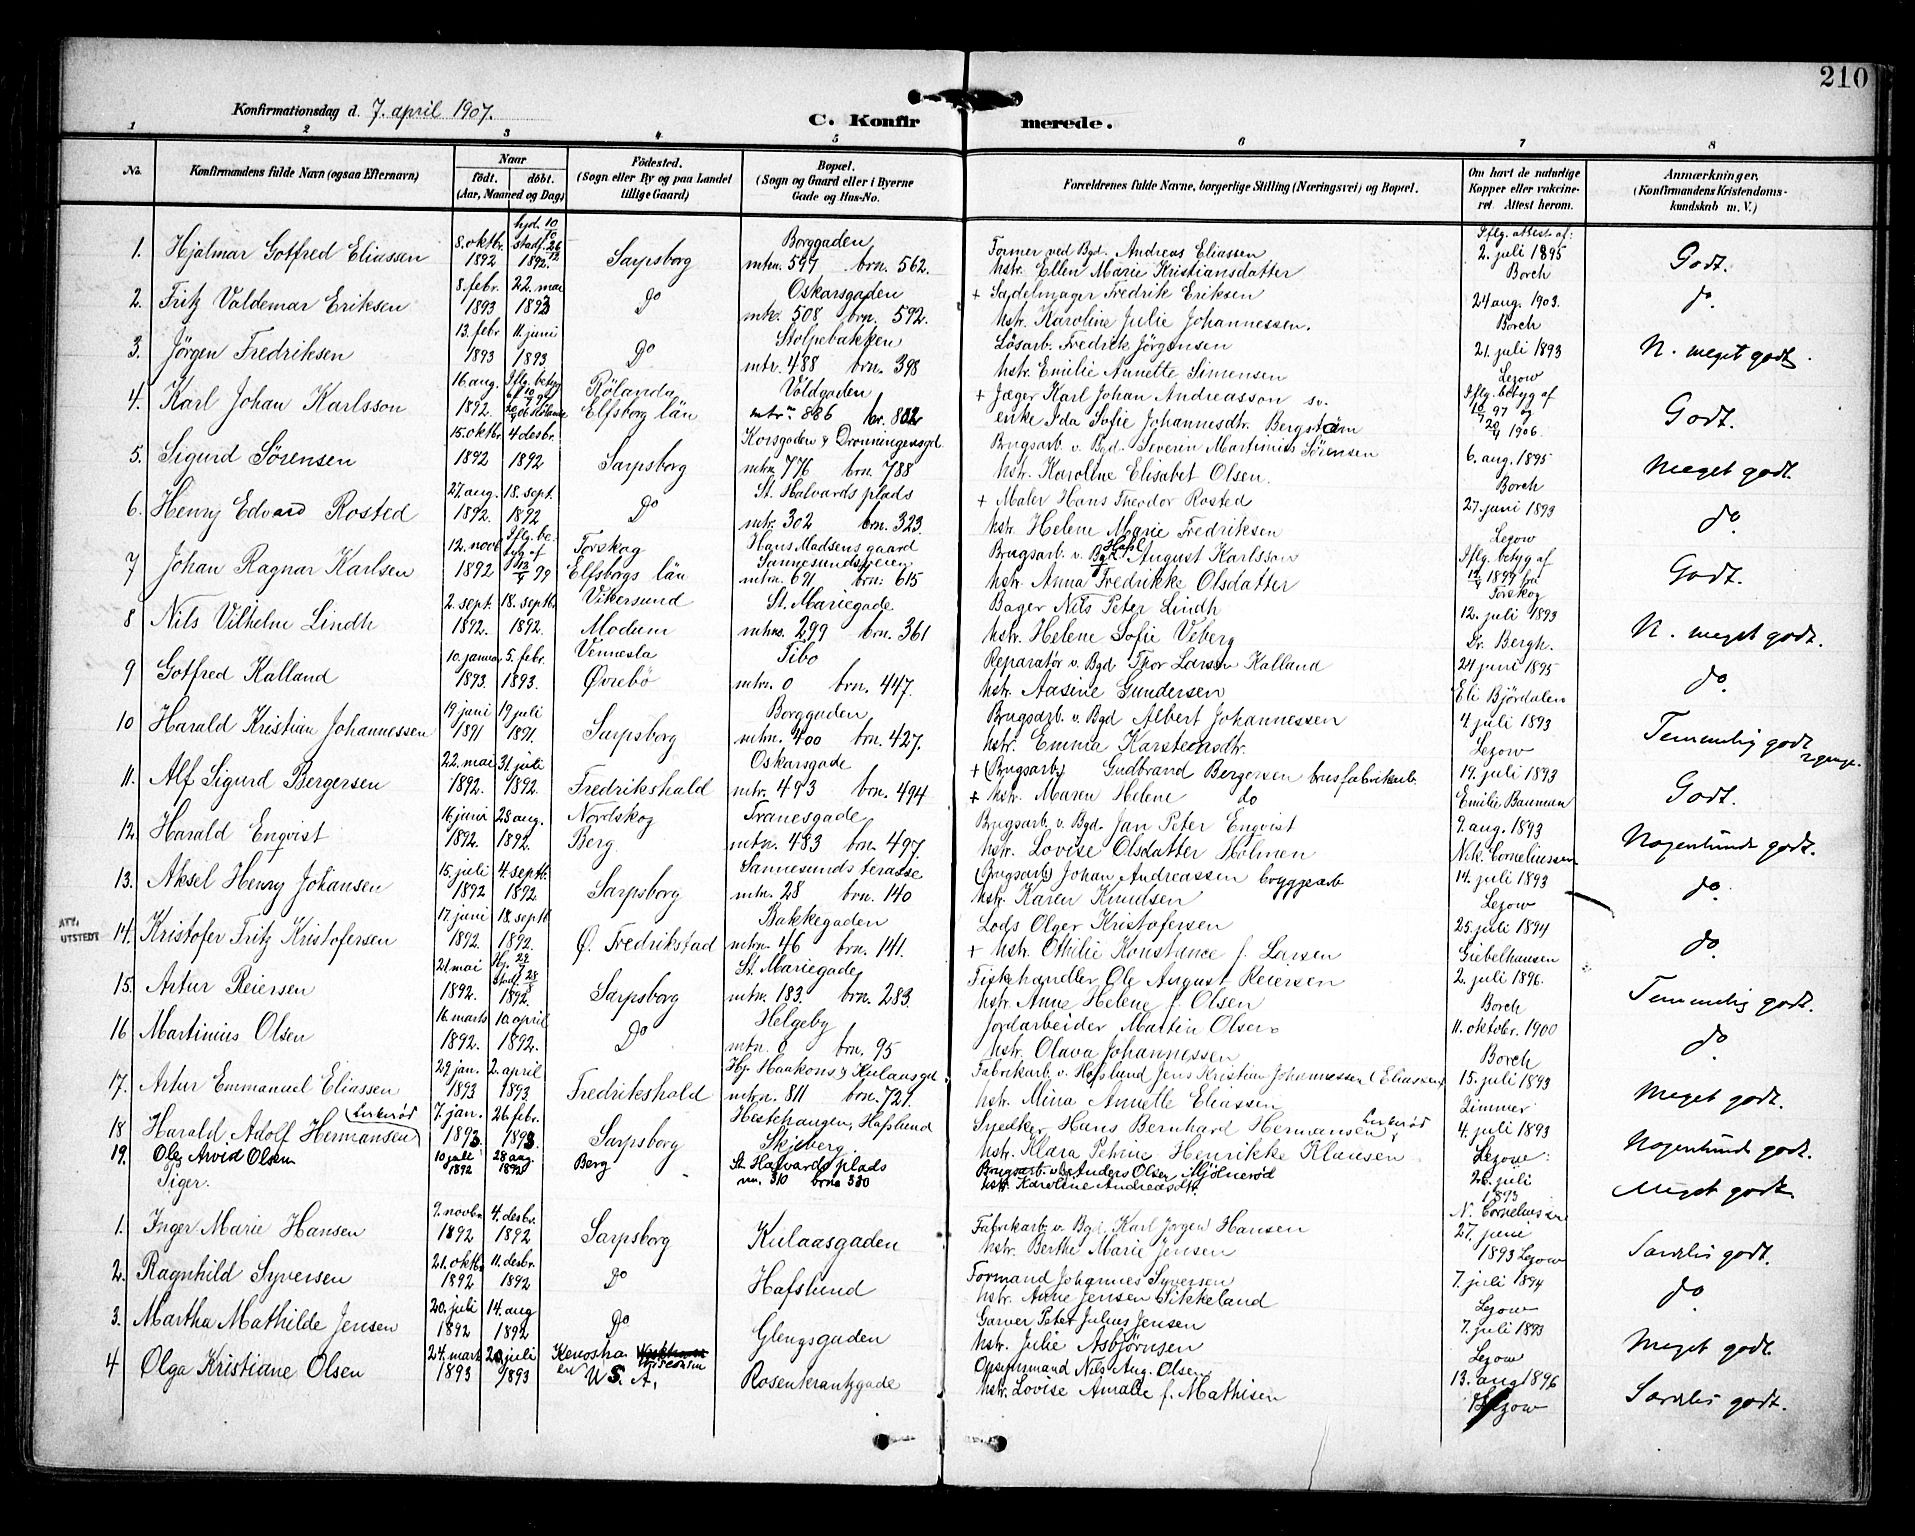 210
Konfirmationsdag d. 7. april 1907.
C. Konfirmerede.
1 2 3 4 5 6 7 8
No.
Konfirmandens fulde Navn (ogsaa Efternavn)
Naar
født. døbt.
(Aar, Maaned og Dag)
Fødested.
(Sogn eller By og paa Landet
tillige Gaard)
Bopæl.
(Sogn og Gaard eller i Byerne
Gade og Hus-No.
Forældrenes fulde Navne, borgerlige Stilling (Næringsvei) og Bopæl.
Om havt de naturlige
Kopper eller vakcine-
ret. Attest herom.
Anmærkninger.
(Konfirmandens Kristendoms-
kundskab m. V.)
1. Hjalmar Gotfred Eliassen
8. oktbr. 1892
hjd. 10/10 stadf. 26/12 1892.
Sarpsborg
Borggaden
mtrn. 597 brn. 562.
Former ved Bgd. Andreas Eliassen
hstr. Ellen Marie Kristiansdatter
Iflg. attest af:
2. juli 1895
Borch
Godt.
2. Fritz Valdemar Eriksen
8. febr. 1893
22. mai 1893
Do
Oskarsgaden
mtr. 508 brn. 592.
+ Sadelmager Fredrik Eriksen
hstr. Karoline Julie Johannessen.
24 aug. 1903.
Borch
do.
3. Jørgen Fredriksen
13. febr 1893
11. juni 1893
Do
Stolpebakken
mtr. 488 brn. 398
Løsarb. Fredrik Jørgensen
hstr. Emilie Annette Simensen
21. juli 1893
Lezow
N. meget godt.
4. Karl Johan Karlsson
16. aug. 1892.
Iflg. betyg
Rølanda
Elfsborg län
Voldgaden
mtrn 886 br. 802
+ Jæger Karl Johan Andreasson sv.
enke Ida Sofie Johannesdtr. Bergstøm
Iflg. betyg af
10/7 97 og
20/4 1906.
Godt.
5. Sigurd Sørensen
15. oktbr. 1892
4 desbr. 1892
Sarpsborg
Korsgaden & Dronningensgd
mtrn 776 brn. 788
Brugsarb. v. Bgd. Severin Martinius Sørensen
hstr. Karoline Elisabet Olsen.
6. aug. 1895
Borch
Meget godt.
6. Henry Edvard Rosted
27. aug. 1892.
18. sept. 1892
Do
St. Halvards plads
mtr. 302 brn. 323.
+ Maler Hans Theodor Rosted
hstr. Helene Marie Fredriksen
27. juni 1893
Lezow
do
7 Johan Ragnar Karlsen
12. novb 1892
Iflg. be-
tyg af
99
Torskog
Elfsborgs län
Hans Madsens gaard
Sannesundsveien
mtrn. 691 brn: 615
Brugsarb. v. Hafsl. August Karlsson
hstr. Anna Fredrikke Olsdatter
Iflg. betyg af
1899 fra
Torskog
Godt.
8 Nils Vilhelm Lindh
2. sept. 1892.
18. septb. 1892.
Vikersund
Modum
St. Mariegade
mtrn. 299 brn. 361
Bager Nils Peter Lindh
hstr. Helene Sofie Veberg
12. juli 1893
Dr. Bergh.
N. meget godt.
9 Gotfred Kalland
10. januar 1893.
5. febr. 1893.
Vennesla
Øvrebø
Tibo
mtrn. 0 brn. 447.
Reparatør v. Bgd Thor Larsen Kalland
hstr. Aasine Gundersen
24 juni 1895
Eli Björdalen
do.
10 Harald Kristian Johannessen
19 juni 1891
19 juli 1891.
Sarpsborg
Borggaden
mtrn. 400 brn. 427.
Brugsarb. v. Bgd Albert Johannessen
hstr. Emma Karstensdtr.
4 juli 1893
Lezow
Temmelig godt
11. Alf Sigurd Bergersen
22. mai 1892.
31. juli 1892.
Fredrikshald
Oskarsgade
mtr. 493 brn. 494
+ (Brugsarb) Gudbrand Bergersen brusfabrikarb.
+ hstr. Maren Helene do
19. juli 1893
Emilie Bauman
Godt.
12. Harald Enqvist
16. juni 1892.
28 aug. 1892.
Nordskog
Berg.
Tranesgade
mtrn. 483 brn. 497.
Brugsarb. v. Bgd. Jan Peter Enqvist
hstr. Lovise Olsdatter Holmen
9. aug. 1893
Nik. Corneliussen
Nogenlunde godt.
13. Aksel Henry Johansen
15. juli 1892
4. septb. 1892
Sarpsborg
Sannesunds terasse
mtrn. 28 brn. 140
(Brugsarb) Johan Andreassen bryggearb
hstr. Karen Knudsen
14. juli 1893
Lezow
do.
ATT.
UTSTEDT
14. Kristofer Fritz Kristofersen
17 juni 1892.
18. septb 1892.
Ø. Fredrikstad
Bakkegaden
mtrn. 46 brn. 141.
Lods Olger Kristofersen
+ hstr. Othilie Konstance f. Larsen
25. juli 1894
Giebelhausen
do
15. Artur Reiersen
21. mai 1892.
Stadf. 28/8 1892.
Sarpsborg
St. Mariegade
mtrn. 183. brn. 283.
Fiskehandler Ole August Reiersen
hstr. Anne Helene f. Olsen
2. juli 1896.
Borch
Temmelig godt.
16 Martinius Olsen
16. marts 1892.
10. april 1892.
Do
Helgeby
mtrn. 0 brn. 95
Jordarbeider Martin Olsen
hstr. Olava Johannessen
11. oktobr. 1900
Borch
do
17. Artur Emmanuel Eliassen
29. jan. 1893
2. april 1893
Fredrikshald
Hj. Haakons & Kulaasgd
mtrn. 811 brn. 729.
Fabrikarb. v. Hafslund Jens Kristian Johannessen (Eliassen)
hstr. Mina Annette Eliassen
15. juli 1893
Zimmer
Meget godt.
18 Harald Adolf Hermansen
7. jan. 1893.
26. febr. 1893.
Sarpsborg
Hestehaugen, Hafslund
Skjeberg.
Snedker Hans Bernhard Hermansen
hstr. Klara Petrine Henrikke Klausen
4. juli 1893
Lezow.
Nogenlunde godt.
19. Ole Arvid Olsen
10 juli 1892
28 aug. 1892
Berg
St. Halvards plads
mn. 310 brn. 330
Brugsarb. v. Bg. Anders Olsen Mjölnerød
hstr Karoline Andreasdtr.
26. juli
1893
N. Corneliussen
Meget godt.
Piger.
1. Inger Marie Hansen
9. novbr. 1892
4. desbr. 1892
Sarpsborg
Kulaasgaden
Fabrikarb. v. Bgd. Karl Jørgen Hansen
hstr. Berthe Marie Jensen
27. juni
1893 Lezow
Særdeles godt.
2. Ragnhild Syversen
21. oktbr 1892
11. desbr. 1892
Do
Hafslund
Formand Johannes Syversen
hstr. Anne Jensen Sikkeland
7. juli 1894
Lezow
do
3. Martha Mathilde Jensen
20. juli 1892
14. aug 1892
Do
Glengsgaden
Garver Peter Julius Jensen
hstr. Julie Asbjørnsen
7. juli 1893
Lezow
Meget godt.
4 Olga Kristiane Olsen
24. mart 1893
20. juli 1893
Kenosha Wisconsin
U. S. A.
Rosenkrantzgade
Opsynsmand Nils Aug. Olsen
hstr. Lovise Amalie f. Mathisen
13. aug 1896
Lezow
Særdeles godt.